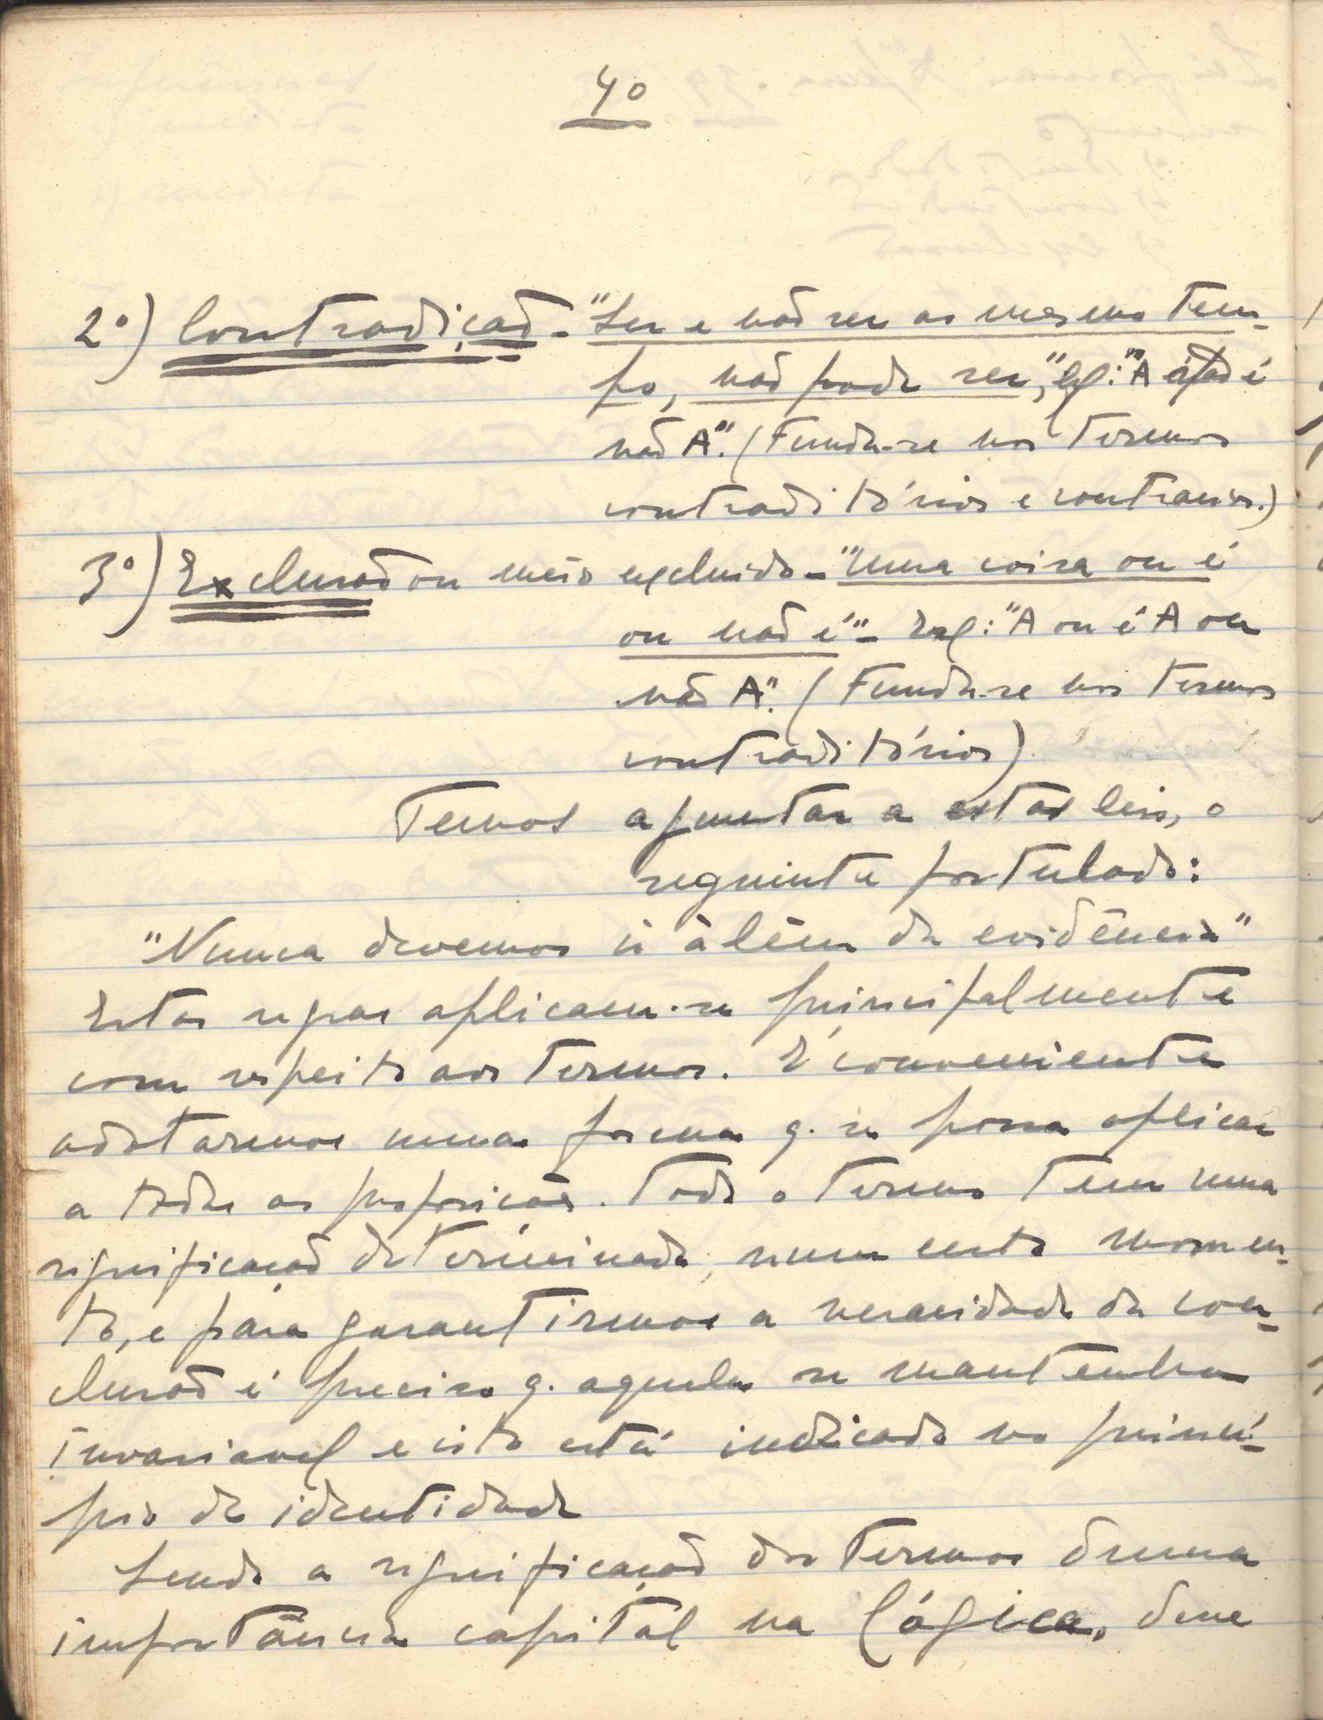 40
2º) Contradição - "Ser e não ser ao mesmo tem-
po, não pode ser", Ex: "A não é
não A". (Funda-se nos termos
contraditórios e contrários.)
3º) Exclusão ou meio excluido - "Uma coisa ou é
ou não é" - Ex: "A ou é A ou
não A". (Funda-se nos termos
contraditórios)
Temos a juntar a estas leis, o
seguinte postulado:
"Nunca devemos ir àlém da evidência"
Estas regras aplicam-se principalmente
com respeito aos termos. É conveniente
adotarmos uma forma q. se possa aplicar
a todas as proposições. Todo o termo tem uma
significação determinada, num certo momen-
to, e para garantirmos a veracidade da con-
clusão é preciso q. aquela se mantenha
invariavel e isto está indicado no princí-
pio de identidade
Sendo a significação dos termos duma
importância capital na Lógica, deve